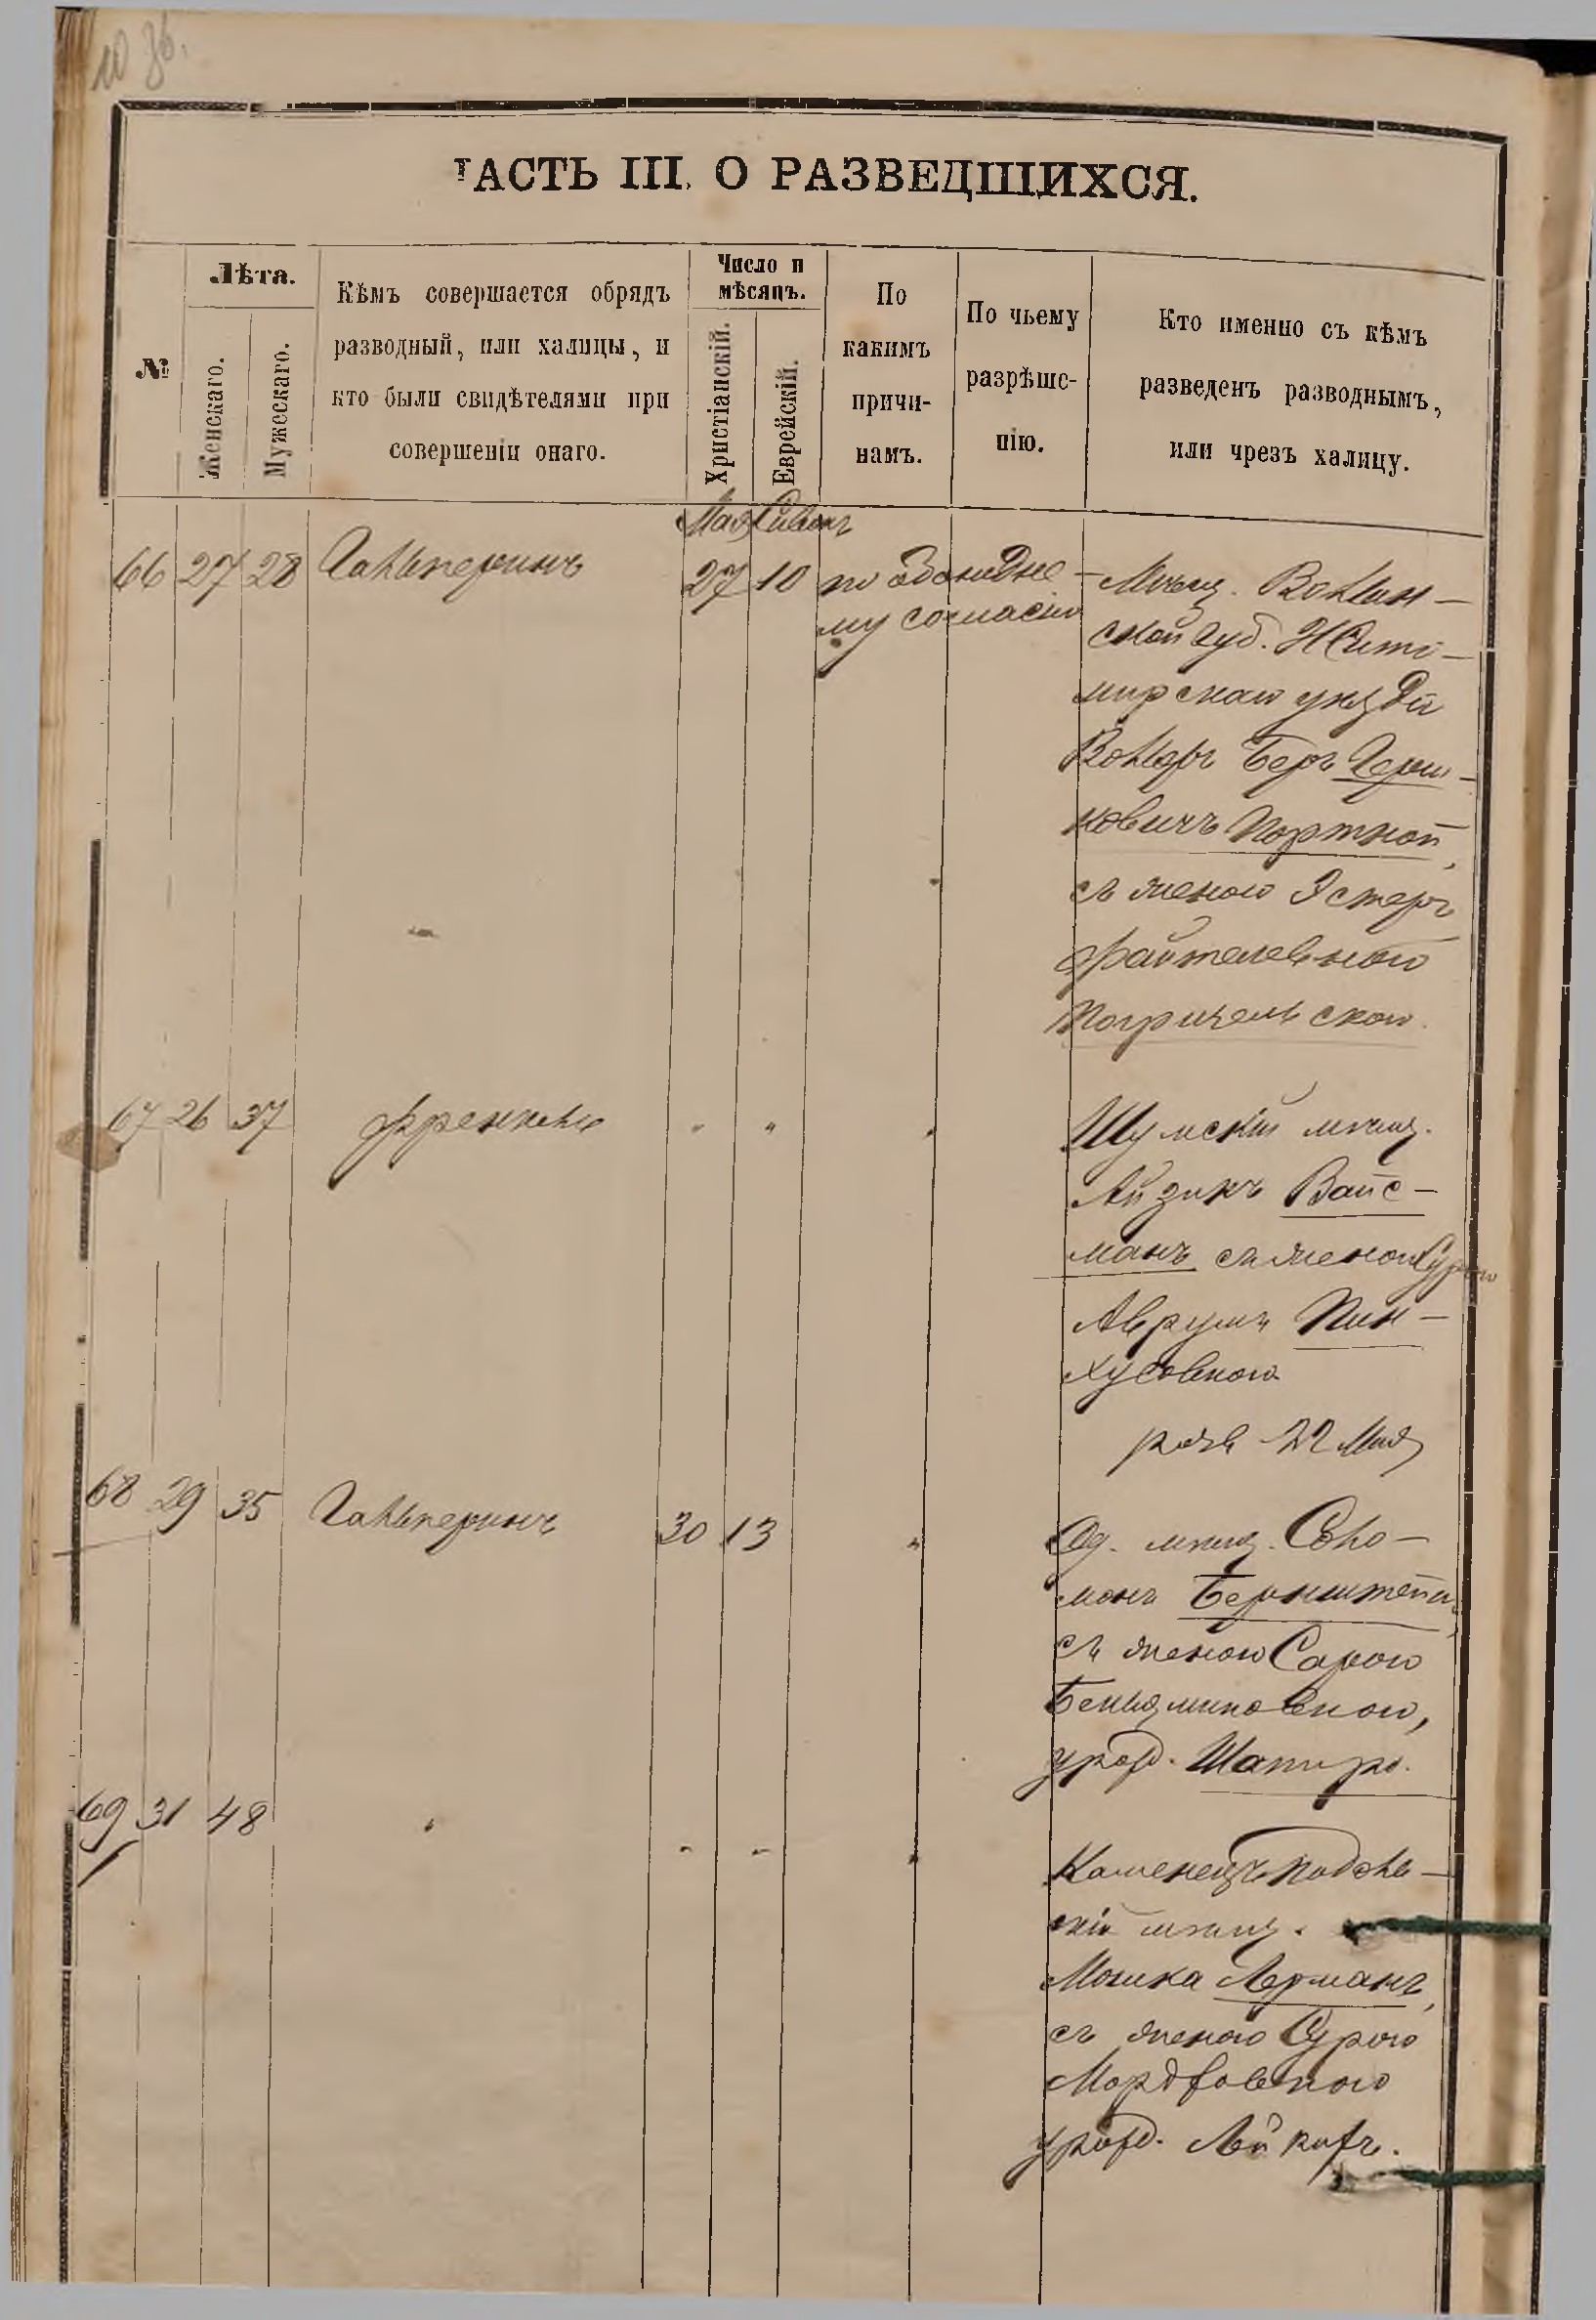 ЧАСТЬ III. О РАЗВЕДШИХСЯ.
№
Лѣта.
Женскаго.
Мужескаго.
Кѣмъ совершается обрядъ
разводный, или халицы, и
кто были свидѣтелями при
совершеніи онаго.
Число и
мѣсяцъ.
Христіанскій.
Еврейскій.
По
какимъ
причи-
намъ.
По чьему
разрѣше-
нію.
Кто именно съ кѣмъ
разведенъ разводнымъ,
или чрезъ халицу.
Мая Сиванъ
66 27 28 Гальперинъ 27 10 по обоюдно-
му согласію
Мѣщ. Волын-
ской губ. Жито-
мирскаго уѣзда
Вольфъ Беръ Герш-
ковичъ Портной,
съ женою Эстеръ
Файтелевною
67 26 37 Френкель " " "
Шумскій мѣщ.
Айзикъ Вайс-
манъ съ женою Сурою
Аврумъ Пин-
хусовною
22 Мая
68 29 35 Гальперинъ 30 13 "
Од. мѣщ. Соло-
монъ Бернштейнъ,
съ женою Сарою
Беньяминовною,
урожд. Шапиро.
69 31 48 " " " "
Каменецъ Подоль-
скій мѣщ.
Мошка Лерманъ,
съ женою Сурою
Мордковною
урожд.